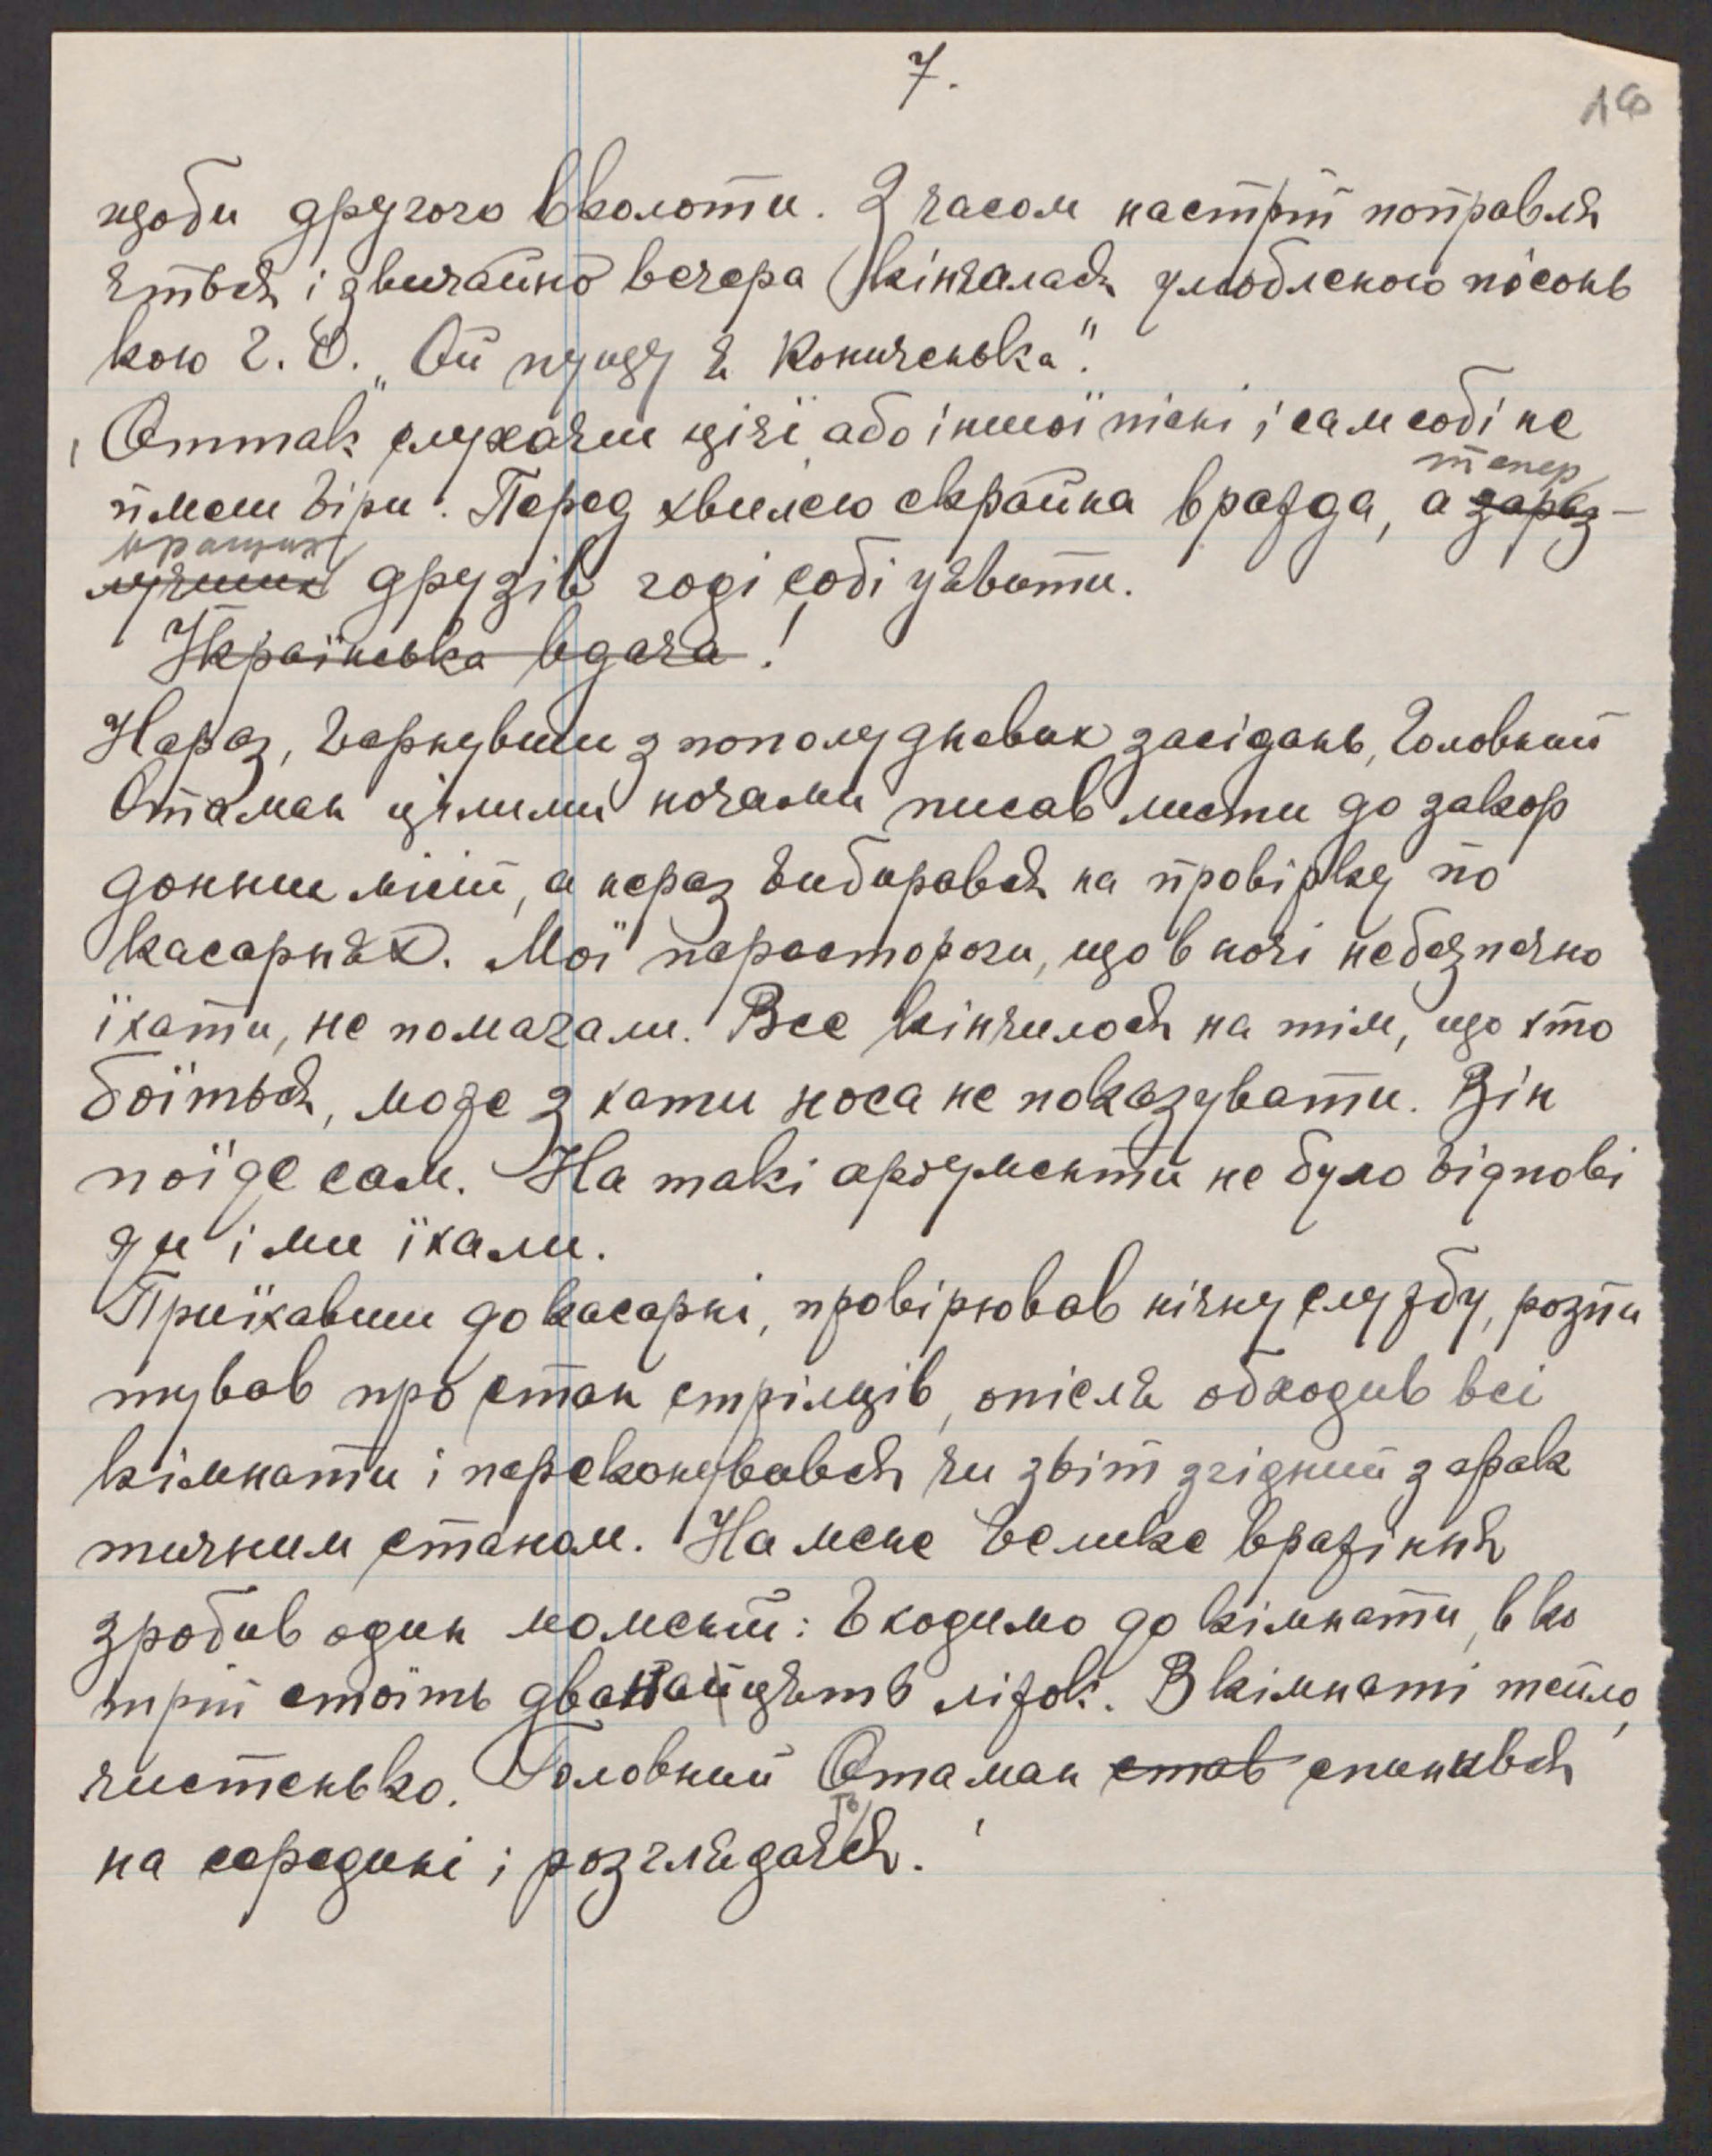 7.
18
щоби другого вколоти. З часом настрій поправля
ється і звичайно вечера кінчалась улюбленою пісонь
кою Г. О. „Ой пущу я кониченька".
Оттак слухаєш цієї або іншої пісні і сам собі не
ймеш віри. Перед хвилею скрайна вражда, а зараз -
тепер
кращих
лучших друзів годі собі уявити.
Українська вдача!
Нераз, вернувши з пополудневих засідань, Головний
Отаман цілими ночами писав листи до закор
донних місій, а нераз вибирався на провірку по
касарнях. Мої перестороги, що в ночі небезпечно
їхати, не помагали. Все кінчилось на тім, що хто
боїться, може з хати носа не показувати. Він
поїде сам. На такі арґументи не було відпові
ди і ми їхали.
Приїхавши до касарні, провірював нічну службу, розпи
тував про стан стрільців, опісля обходив всі
кімнати і переконувався чи звіт згідний з фак
тичним станом. На мене велике вражіння
зробив один момент: Входимо до кімнати, в ко
трій стоїть дванайцять ліжок. В кімнаті тепло,
чистенько. Головний Отаман став спинився
на середині і розглядається.